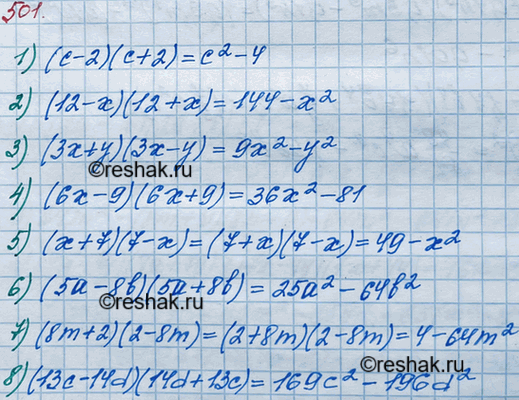 501.
1) (c-2)(c+2)=c²-4
2) (12-x)(12+x)=144-x²
3) (3x+y)(3x-y)=9x²-y²
©reshak.ru
4) (6x-9)(6x+9)=36x²-81
5) (x+7)(7-x)=(7+x)(7-x)=49-x²
6) (5a-8b)(5a+8b)=25a²-64b²
©reshak.ru
7) (8m+2)(2-8m)=(2+8m)(2-8m)=4-64m²
©reshak.ru
8) (13c-14d)(14d+13c)=169c²-196d²